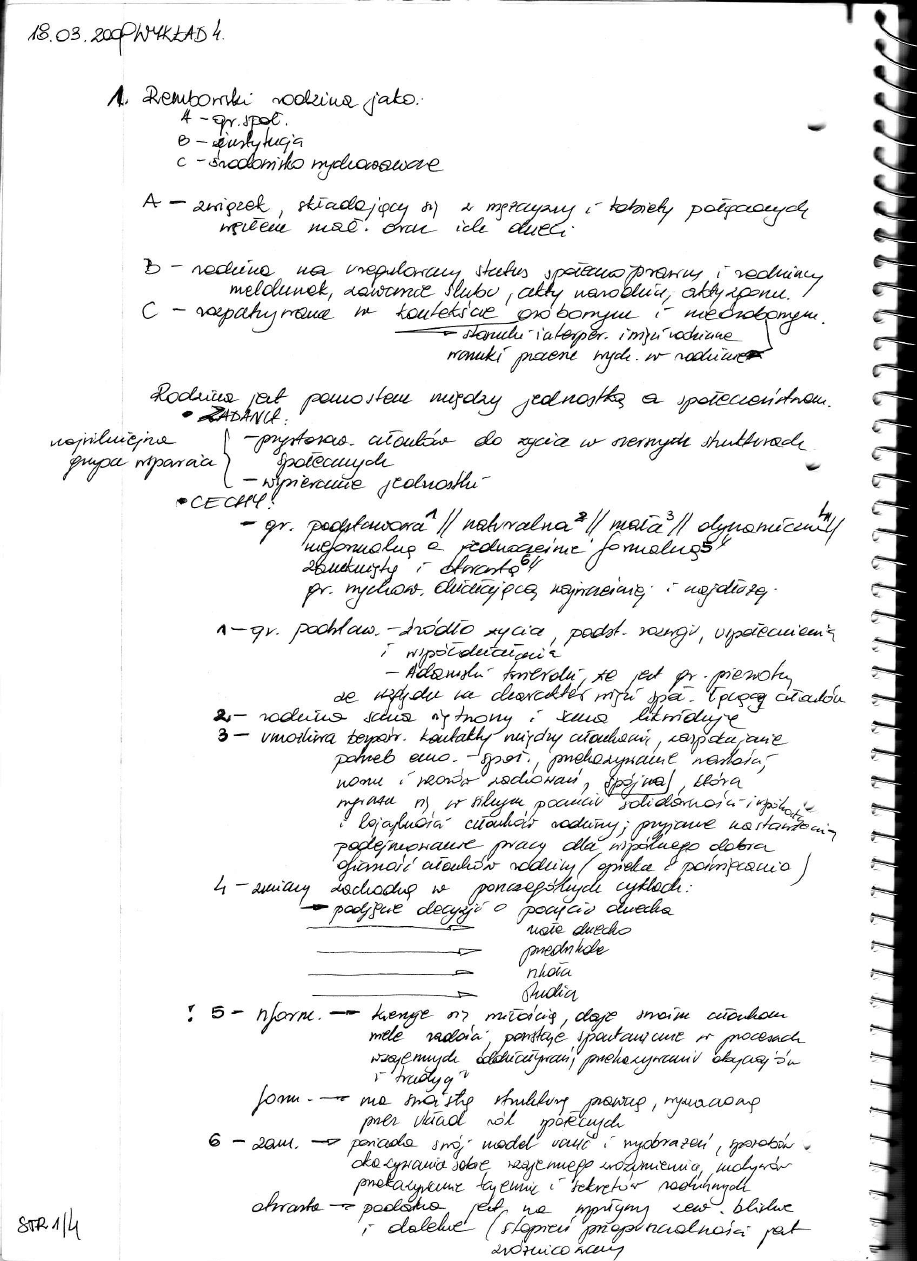 18.03.200 WYKŁAD 4.
1. Rembowski rodzina jako:
A - gr. społ.
B - instytucja
C - środowisko wychowawcze
A - związek, składający się z mężczyzny i kobiety połączonych
węzłem małż. oraz ich dzieci.
B - rodzina ma uregulowany status społeczno/prawny i rodzinny
meldunek, zawarcie ślubu, akty narodzin, akty zgonu.
C - rozpatrywana w kontekście osobowym i nieosobowym.
stosunki interper. i więzi rodzinne
warunki procesu wych. w rodzinie
Rodzina jest pomostem między jednostką a społeczeństwem.
• ZADANIA:
najsilniejsza
grupa wsparcia
- przystosow. członków do życia w szerszych strukturach
społecznych
- wspieranie jednostki
• CECHY:
- gr. podstawowa 1 // naturalna 2 // mała 3 // dynamiczna 4 //
nieformalną a jednocześnie formalną 5 //
zamkniętą i otwartą 6 //
gr. wychow. działającą najwcześniej i najdłużej.
1 - gr. podstaw. - źródło życia, podst. rozwoju, uspołecznienia
i współdziałania
- Adamski twierdzi, że jest gr. pierwotną
ze względu na charakter więzi społ. łączącej członków
2 - rodzina sama się tworzy i sama likwiduje
3 - umożliwia bezpośr. kontakty między członkami, zaspokajanie
potrzeb emo. - społ., przekazywanie wartości,
norm i wzorów zachowań, spójność, która
wyraża się w silnym poczuciu solidarności i
i lojalności członków rodziny; przyjazne nastawienia,
podejmowanie pracy dla wspólnego dobra
ofiarność członków rodziny (opieka i poświęcenie)
4 - zmiany zachodzą w poszczególnych cyklach:
→ podjęcie decyzji o poczęciu dziecka
→ małe dziecko
→ przedszkole
→ szkoła
→ studia
! 5 - nform. → kieruje się miłością, daje swoim członkom
wiele radości, powstaje spontanicznie w procesach
wzajemnych oddziaływań, przekazywaniu obyczajów
i tradycji
form. → ma swoistą strukturę prawną, wyznaczoną
przez układ ról społecznych
6 - zam. → posiada swój model uczuć i wyobrażeń, sposobów
okazywania sobie wzajemnego zrozumienia, motywów
przekazywanie tajemnic i sekretów rodzinnych
otwarta → podatna jest na wpływy zew. bliskie
i dalekie (stopień przepuszczalności jest
zróżnicowany
STR 1/4